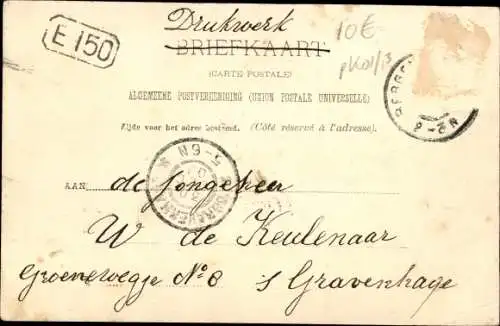 Drukwerk
E 150
10€
BRIEFKAART
(CARTE POSTALE)
ALGEMEENE POSTVEREENIGING (UNION POSTALE UNIVERSELLE)
Zijde voor het adres bestemd. (Côté réservé à l'adresse.)
5-6N
AAN de Jongeheer
W de Keulenaar
Groenewegje No 8 s Gravenhage